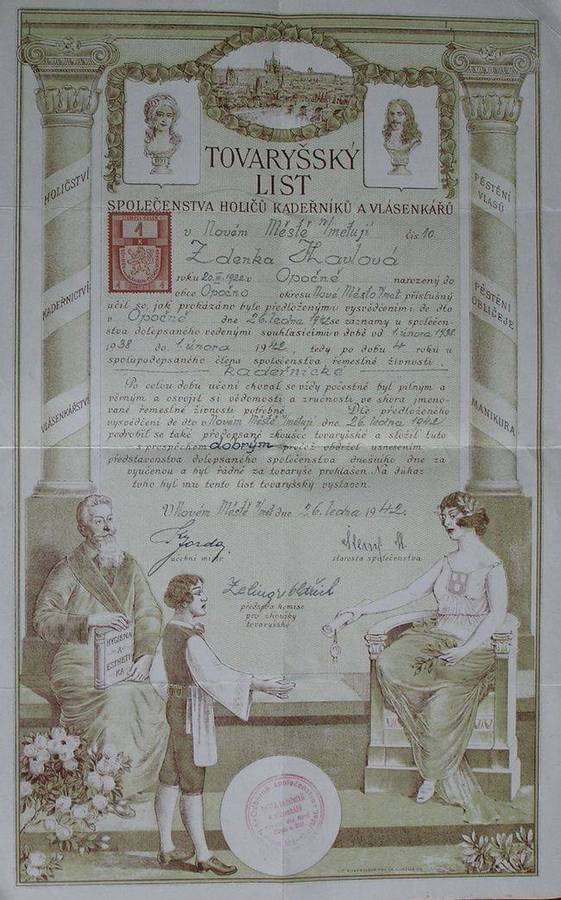 TOVARYŠSKÝ
LIST
SPOLEČENSTVA HOLIČŮ KADEŘNÍKŮ A VLÁSENKÁŘŮ
v Novém Městě n/Metují čís. 10.
Zdenka Havlová
roku 20. 1922 v Opočně narozený do
obce Opočno okresu Nové Město n/Met. příslušný
učil se, jak prokázáno bylo předloženými vysvědčeními de dto
v Opočně dne 26. ledna 1942 se záznamy u společen-
stva dolepsaného vedenými souhlasícími v době od 1. února 1938
1938 do 1. února 1942, tedy po dobu 4 roků u
spolupodepsaného člena společenstva řemeslné živnosti
kadeřnické
Po celou dobu učení choval se vždy počestně byl pilným a
věrným a osvojil si vědomosti a zručnosti ve shora jmeno-
vané řemeslné živnosti potřebné. Dle předloženého
vysvědčení de dto v Novém Městě n/Metují dne 26. ledna 1942
podrobil se také předepsané zkoušce tovaryšské a složil tuto
s prospěchem dobrým pročež obdržel usnesením
představenstva dolepsaného společenstva dnešního dne za
vyučenou a byl řádně za tovaryše prohlášen. Na důkaz
toho byl mu tento list tovaryšský vystaven.
V Novém Městě n/Met. dne 26. ledna 1942.
učební mistr
starosta společenstva.
předseda komise
pro zkoušky
tovaryšské
HOLIČSTVÍ
KADEŘNICTVÍ
VLÁSENKÁŘSTVÍ
PĚSTĚNÍ
VLASŮ
PĚSTĚNÍ
OBLIČEJE
MANIKURA
HYGIENA
A
ESTHETI
KA
1
K